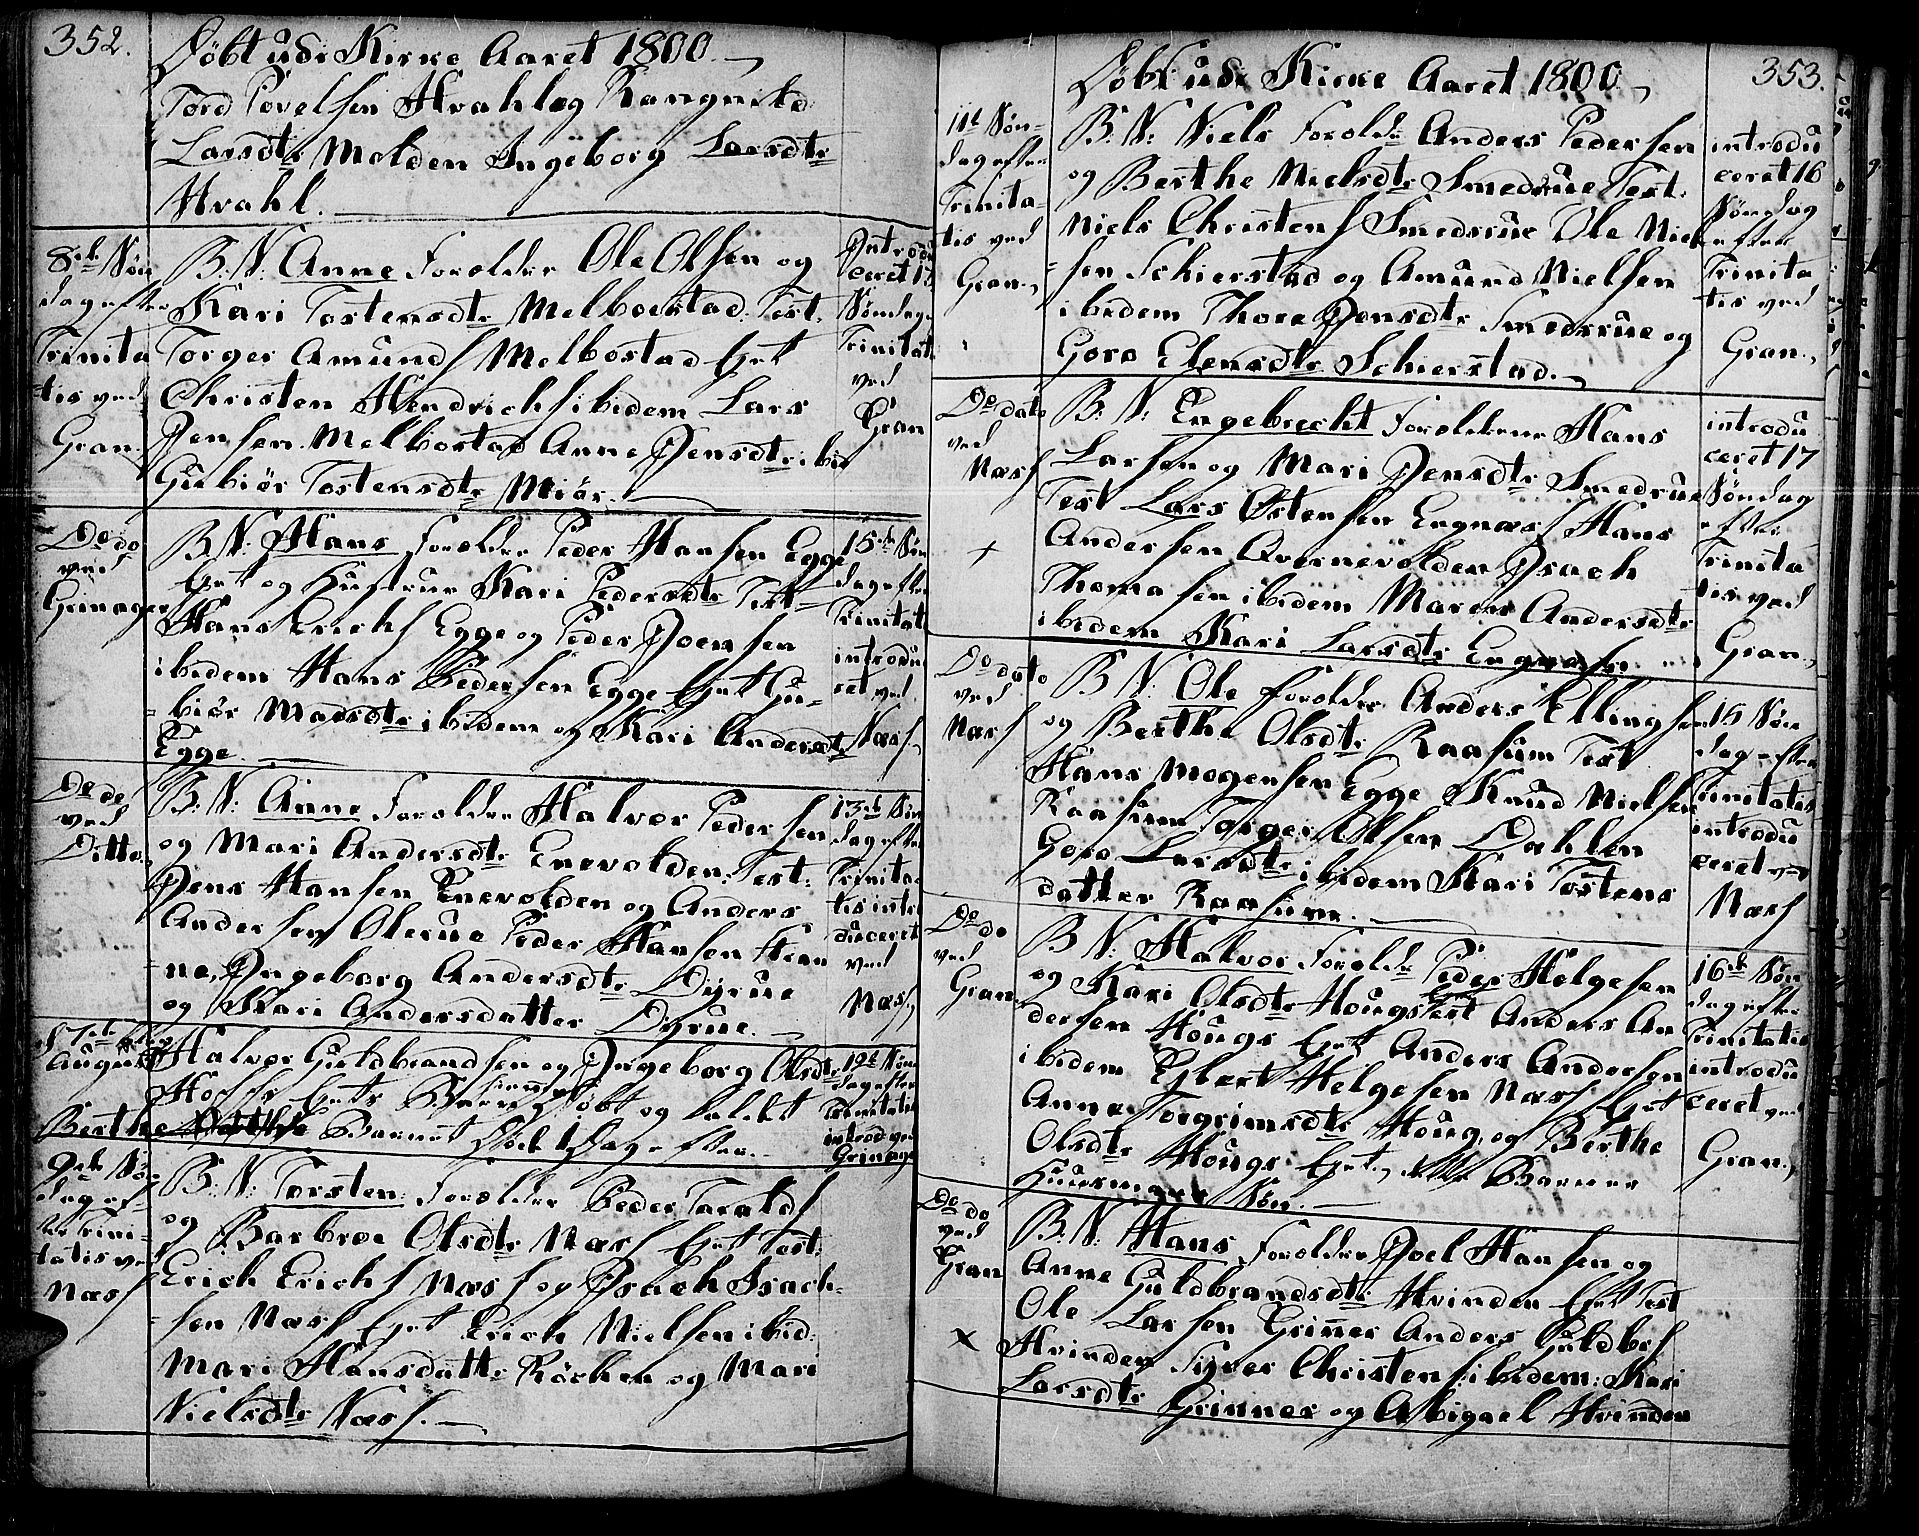 352.
Döbt udi Kirke Aaret 1800
Tord Povelsen Hvahl og Rangnild
Larsdtr Molden Ingeborg Larsdtr
Hvahl.
8de Søn
dag efter
Trinita
tis ved
Gran
B: N: Anne Forældre Ole Olsen og
Kari Tostensdtr Melboestad. Test.
Torger Amunds Melbostad Ejet
Christen Hendrichs ibidem Lars
Jensen Melbostad Anne Jensdtr ibid
Gubiør Tostensdtr Miør.
Introdu
ceret 13
Søndag
Trinitat
ved
Gran
Do do
ved
Grinager
B: N: Hans Forældre Peder Hansen Egge
Ejet og Hustrue Kari Pedersdtr Test
Hans Erichs Egge og Peder Joensen
ibidem Hans Pedersen Egge Ejet Gu-
biør Madsdtr ibidem og Kari Andersdt
Egge
15de Søn
dag efter
Trinitat
introdu
cet ved
Næss
Do do
ved
Ditto
B: N: Anne Forældre Halvor Pedersen
og Mari Andersdtr Enevolden. Test:
Jens Hansen Enevolden og Anders
Andersen Olerue Peder Hansen
ne, Ingeborg Andersdtr Dyrue
og Mari Andersdatter Dyrue.
13de Søn
dag efter
Trinita
tis intro
duceret
ved
Næss
August
Halvor Guldbrandsen og Ingeborg Olsdtr
Eiets Barn döbt og kaldet
Berthe Barnet Død 1 Dag efter.
12t Søn
dag efter
Trinitatis
introd ved
Grinager
9de Søn
dag ef-
ter Trini-
tatis ved
Næss
B: N: Torsten Forældre Peder Taralds
og Barbroe Olsdtr Næss Ejet Test:
Erich Erichs Næss og Isach Isach-
sen Næss Ejet Erich Nielsen ibid:
Mari Hansdattr Röchen og Mari
Nielsdtr Næss.
353.
Döbt udi Kirke Aaret 1800
11te Søn-
dag efter
Trinita-
tis ved
Gran
B: N: Niels Forældr Anders Pedersen
og Berthe Nielsdtr Smedsrue Test.
Niels Christens Smedsrue Ole Niel
sen Schierstad og Amund Nielsen
ibidem Thore Jensdtr Smedsrue og
Goro Elensdtr Schierstad.
introdu
ceret 16
Søndag
efter
Trinita
tis ved
Gran
Do dato
ved
Næss
B: N: Engebrecht Forældrene Hans
Larsen og Mari Jensdtr Smedsrue
Test Lars Østensen Engnæs Hans
Andersen Qvernevolden Isach
Thomasen ibidem Maren Andersdtr
ibidem Kari Larsdtr Engnæss
introdu
ceret 17
Søndag
efter
Trinita
tis ved
Gran
Do dato
ved
Næss
B N: Ole Forældre Anders Ellingsen
og Berthe Olsdtr Raasum Test
Hans Mogensen Egge Knud Nielsen
Raasum Torger Olsen Dahlen
Goro Larsdtr ibidem Kari Tostens
datter Raasum.
15 Søn
dag efter
Trinitatis
introdu
ceret ved
Næss
Do do
ved
Gran
B N: Halvor Forældr Peder Helgesen
og Kari Olsdtr Hougs Ejet Test Anders An
dersen Hougs Ejet Anders Andersen
ibidem Egbert Helgesen Næss Ejet
Anne Torgrimsdtr Houg, og Berthe
Olsdtr Hougs Ejet, Barnet
Huusmands Søn.
16de Søn
dag efter
Trinitatis
introdu
ceret ved
Gran
Do do
ved
Gran
B: N: Hans Forældre Joel Hansen og
Anne Guldbrandsdtr Hvinden Ejet Test
Ole Larsen Grinner Anders Guldbrs
Hvinden Syver Christens ibidem: Kari
Larsdtr Grinner og Abigael Hvinden